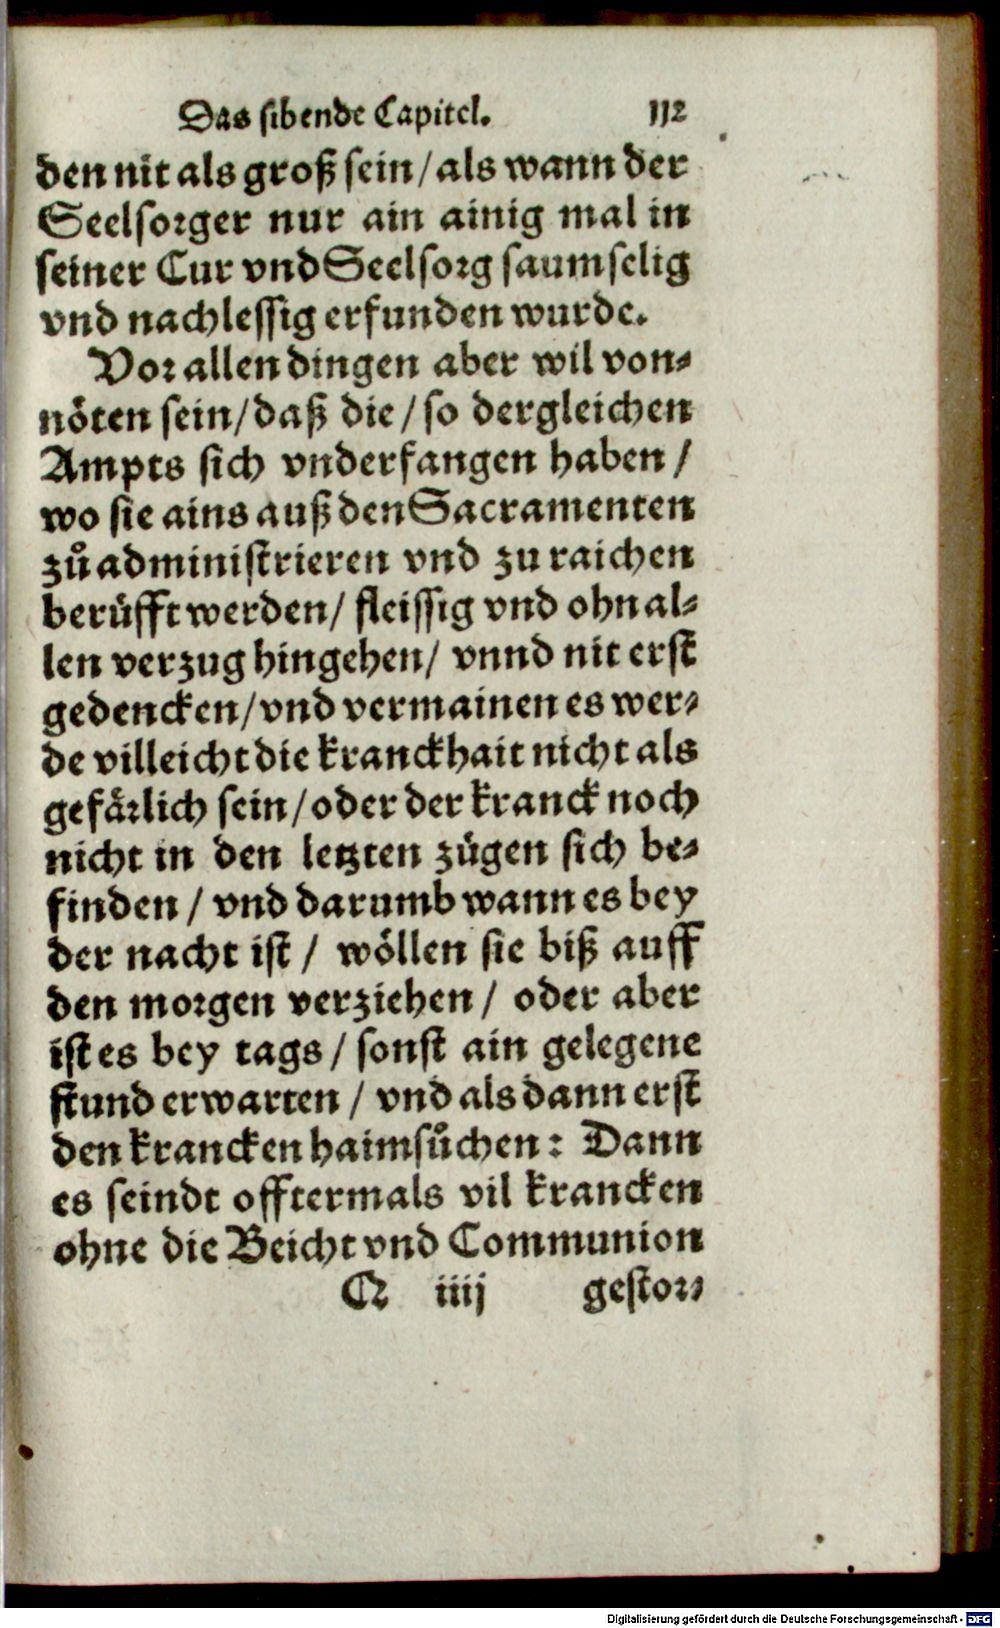 Das sibende Capitel. 112
den nit als groß sein/als wann der
Seelsorger nur ain ainig mal in
seiner Cur vnd Seelsorg saumselig
vnd nachlessig erfunden wurde.
Vor allen dingen aber wil von-
nöten sein/daß die/so dergleichen
Ampts sich vnderfangen haben/
wo sie ains auß den Sacramenten
zů administrieren vnd zu raichen
berüfft werden/ fleissig vnd ohn al-
len verzug hingehen/ vnnd nit erst
gedencken/vnd vermainen es wer-
de villeicht die kranckhait nicht als
gefärlich sein/oder der kranck noch
nicht in den letzten zügen sich be-
finden/ vnd darumb wann es bey
der nacht ist/ wöllen sie biß auff
den morgen verziehen/ oder aber
ist es bey tags/ sonst ain gelegene
stund erwarten/ vnd als dann erst
den krancken haimsůchen: Dann
es seindt offtermals vil krancken
ohne die Beicht vnd Communion
Q iiij gestor-
Digitalisierung gefördert durch die Deutsche Forschungsgemeinschaft - DFG